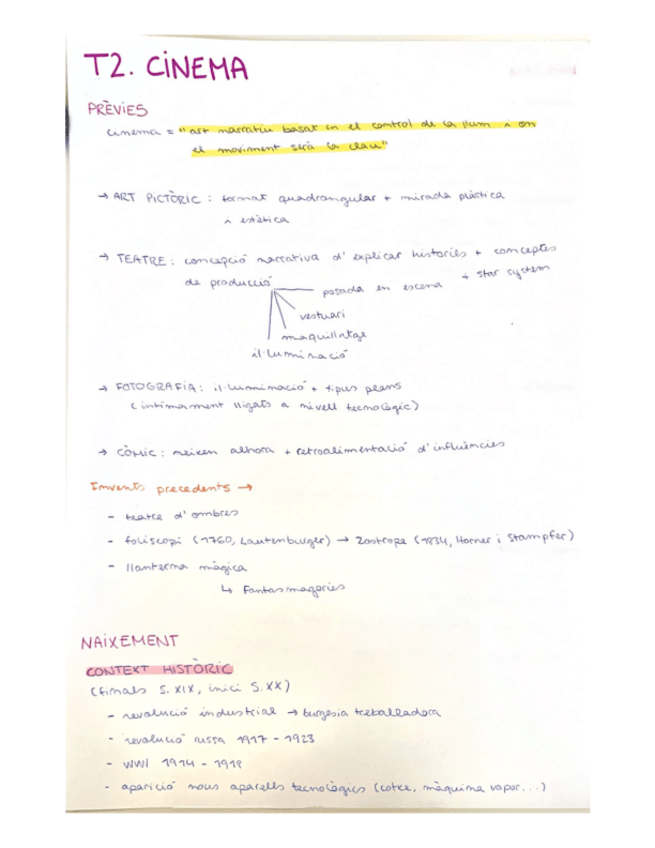 T2. CINEMA
PRÈVIES
cinema = "art narratiu basat en el control de la llum i on
el moviment serà la clau"
→ ART PICTÒRIC : format quadrangular + mirada plàstica
i estètica
→ TEATRE : concepció narrativa d'explicar histories + conceptes
de producció + star system
posada en escena
vestuari
maquillatge
il·luminació
→ FOTOGRAFIA : il·luminació + tipus plans
(íntimament lligats a nivell tecnològic)
→ CÒMIC : neixen alhora + retroalimentació d'influències
Invents precedents →
- teatre d'ombres
- foliscopi (1760, Lautenburger) → Zootrope (1834, Horner i Stampfer)
- llanterna màgica
↳ Fantasmagories
NAIXEMENT
CONTEXT HISTÒRIC
(finals S. XIX, inici S. XX)
- revolució industrial → burgesia treballadora
- revolució russa 1917 - 1923
- WWI 1914 - 1918
- aparició nous aparells tecnològics (cotxe, màquina vapor...)